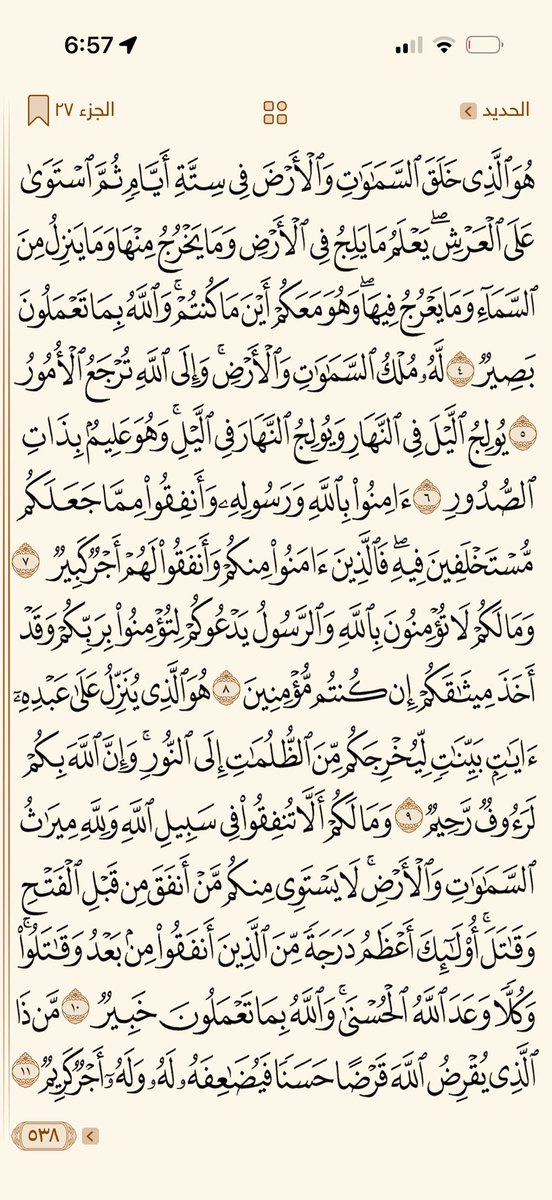 6:57
الحديد
الجزء ٢٧
هُوَ ٱلَّذِى خَلَقَ ٱلسَّمَٰوَٰتِ وَٱلْأَرْضَ فِى سِتَّةِ أَيَّامٍ ثُمَّ ٱسْتَوَىٰ
عَلَى ٱلْعَرْشِۖ يَعْلَمُ مَا يَلِجُ فِى ٱلْأَرْضِ وَمَا يَخْرُجُ مِنْهَا وَمَا يَنزِلُ مِنَ
ٱلسَّمَآءِ وَمَا يَعْرُجُ فِيهَاۖ وَهُوَ مَعَكُمْ أَيْنَ مَا كُنتُمْۚ وَٱللَّهُ بِمَا تَعْمَلُونَ
بَصِيرٌ ٤ لَّهُۥ مُلْكُ ٱلسَّمَٰوَٰتِ وَٱلْأَرْضِۚ وَإِلَى ٱللَّهِ تُرْجَعُ ٱلْأُمُورُ
٥ يُولِجُ ٱلَّيْلَ فِى ٱلنَّهَارِ وَيُولِجُ ٱلنَّهَارَ فِى ٱلَّيْلِۚ وَهُوَ عَلِيمٌۢ بِذَاتِ
ٱلصُّدُورِ ٦ ءَامِنُوا۟ بِٱللَّهِ وَرَسُولِهِۦ وَأَنفِقُوا۟ مِمَّا جَعَلَكُم
مُّسْتَخْلَفِينَ فِيهِۖ فَٱلَّذِينَ ءَامَنُوا۟ مِنكُمْ وَأَنفَقُوا۟ لَهُمْ أَجْرٌ كَبِيرٌ ٧
وَمَا لَكُمْ لَا تُؤْمِنُونَ بِٱللَّهِ وَٱلرَّسُولُ يَدْعُوكُمْ لِتُؤْمِنُوا۟ بِرَبِّكُمْ وَقَدْ
أَخَذَ مِيثَٰقَكُمْ إِن كُنتُم مُّؤْمِنِينَ ٨ هُوَ ٱلَّذِى يُنَزِّلُ عَلَىٰ عَبْدِهِۦٓ
ءَايَٰتٍۭ بَيِّنَٰتٍ لِّيُخْرِجَكُم مِّنَ ٱلظُّلُمَٰتِ إِلَى ٱلنُّورِۚ وَإِنَّ ٱللَّهَ بِكُمْ
لَرَءُوفٌ رَّحِيمٌ ٩ وَمَا لَكُمْ أَلَّا تُنفِقُوا۟ فِى سَبِيلِ ٱللَّهِ وَلِلَّهِ مِيرَٰثُ
ٱلسَّمَٰوَٰتِ وَٱلْأَرْضِۚ لَا يَسْتَوِى مِنكُم مَّنْ أَنفَقَ مِن قَبْلِ ٱلْفَتْحِ
وَقَٰتَلَۚ أُو۟لَٰٓئِكَ أَعْظَمُ دَرَجَةً مِّنَ ٱلَّذِينَ أَنفَقُوا۟ مِنۢ بَعْدُ وَقَٰتَلُوا۟ۚ
وَكُلًّا وَعَدَ ٱللَّهُ ٱلْحُسْنَىٰۚ وَٱللَّهُ بِمَا تَعْمَلُونَ خَبِيرٌ ١٠ مَّن ذَا
ٱلَّذِى يُقْرِضُ ٱللَّهَ قَرْضًا حَسَنًا فَيُضَٰعِفَهُۥ لَهُۥ وَلَهُۥٓ أَجْرٌ كَرِيمٌ ١١
٥٣٨